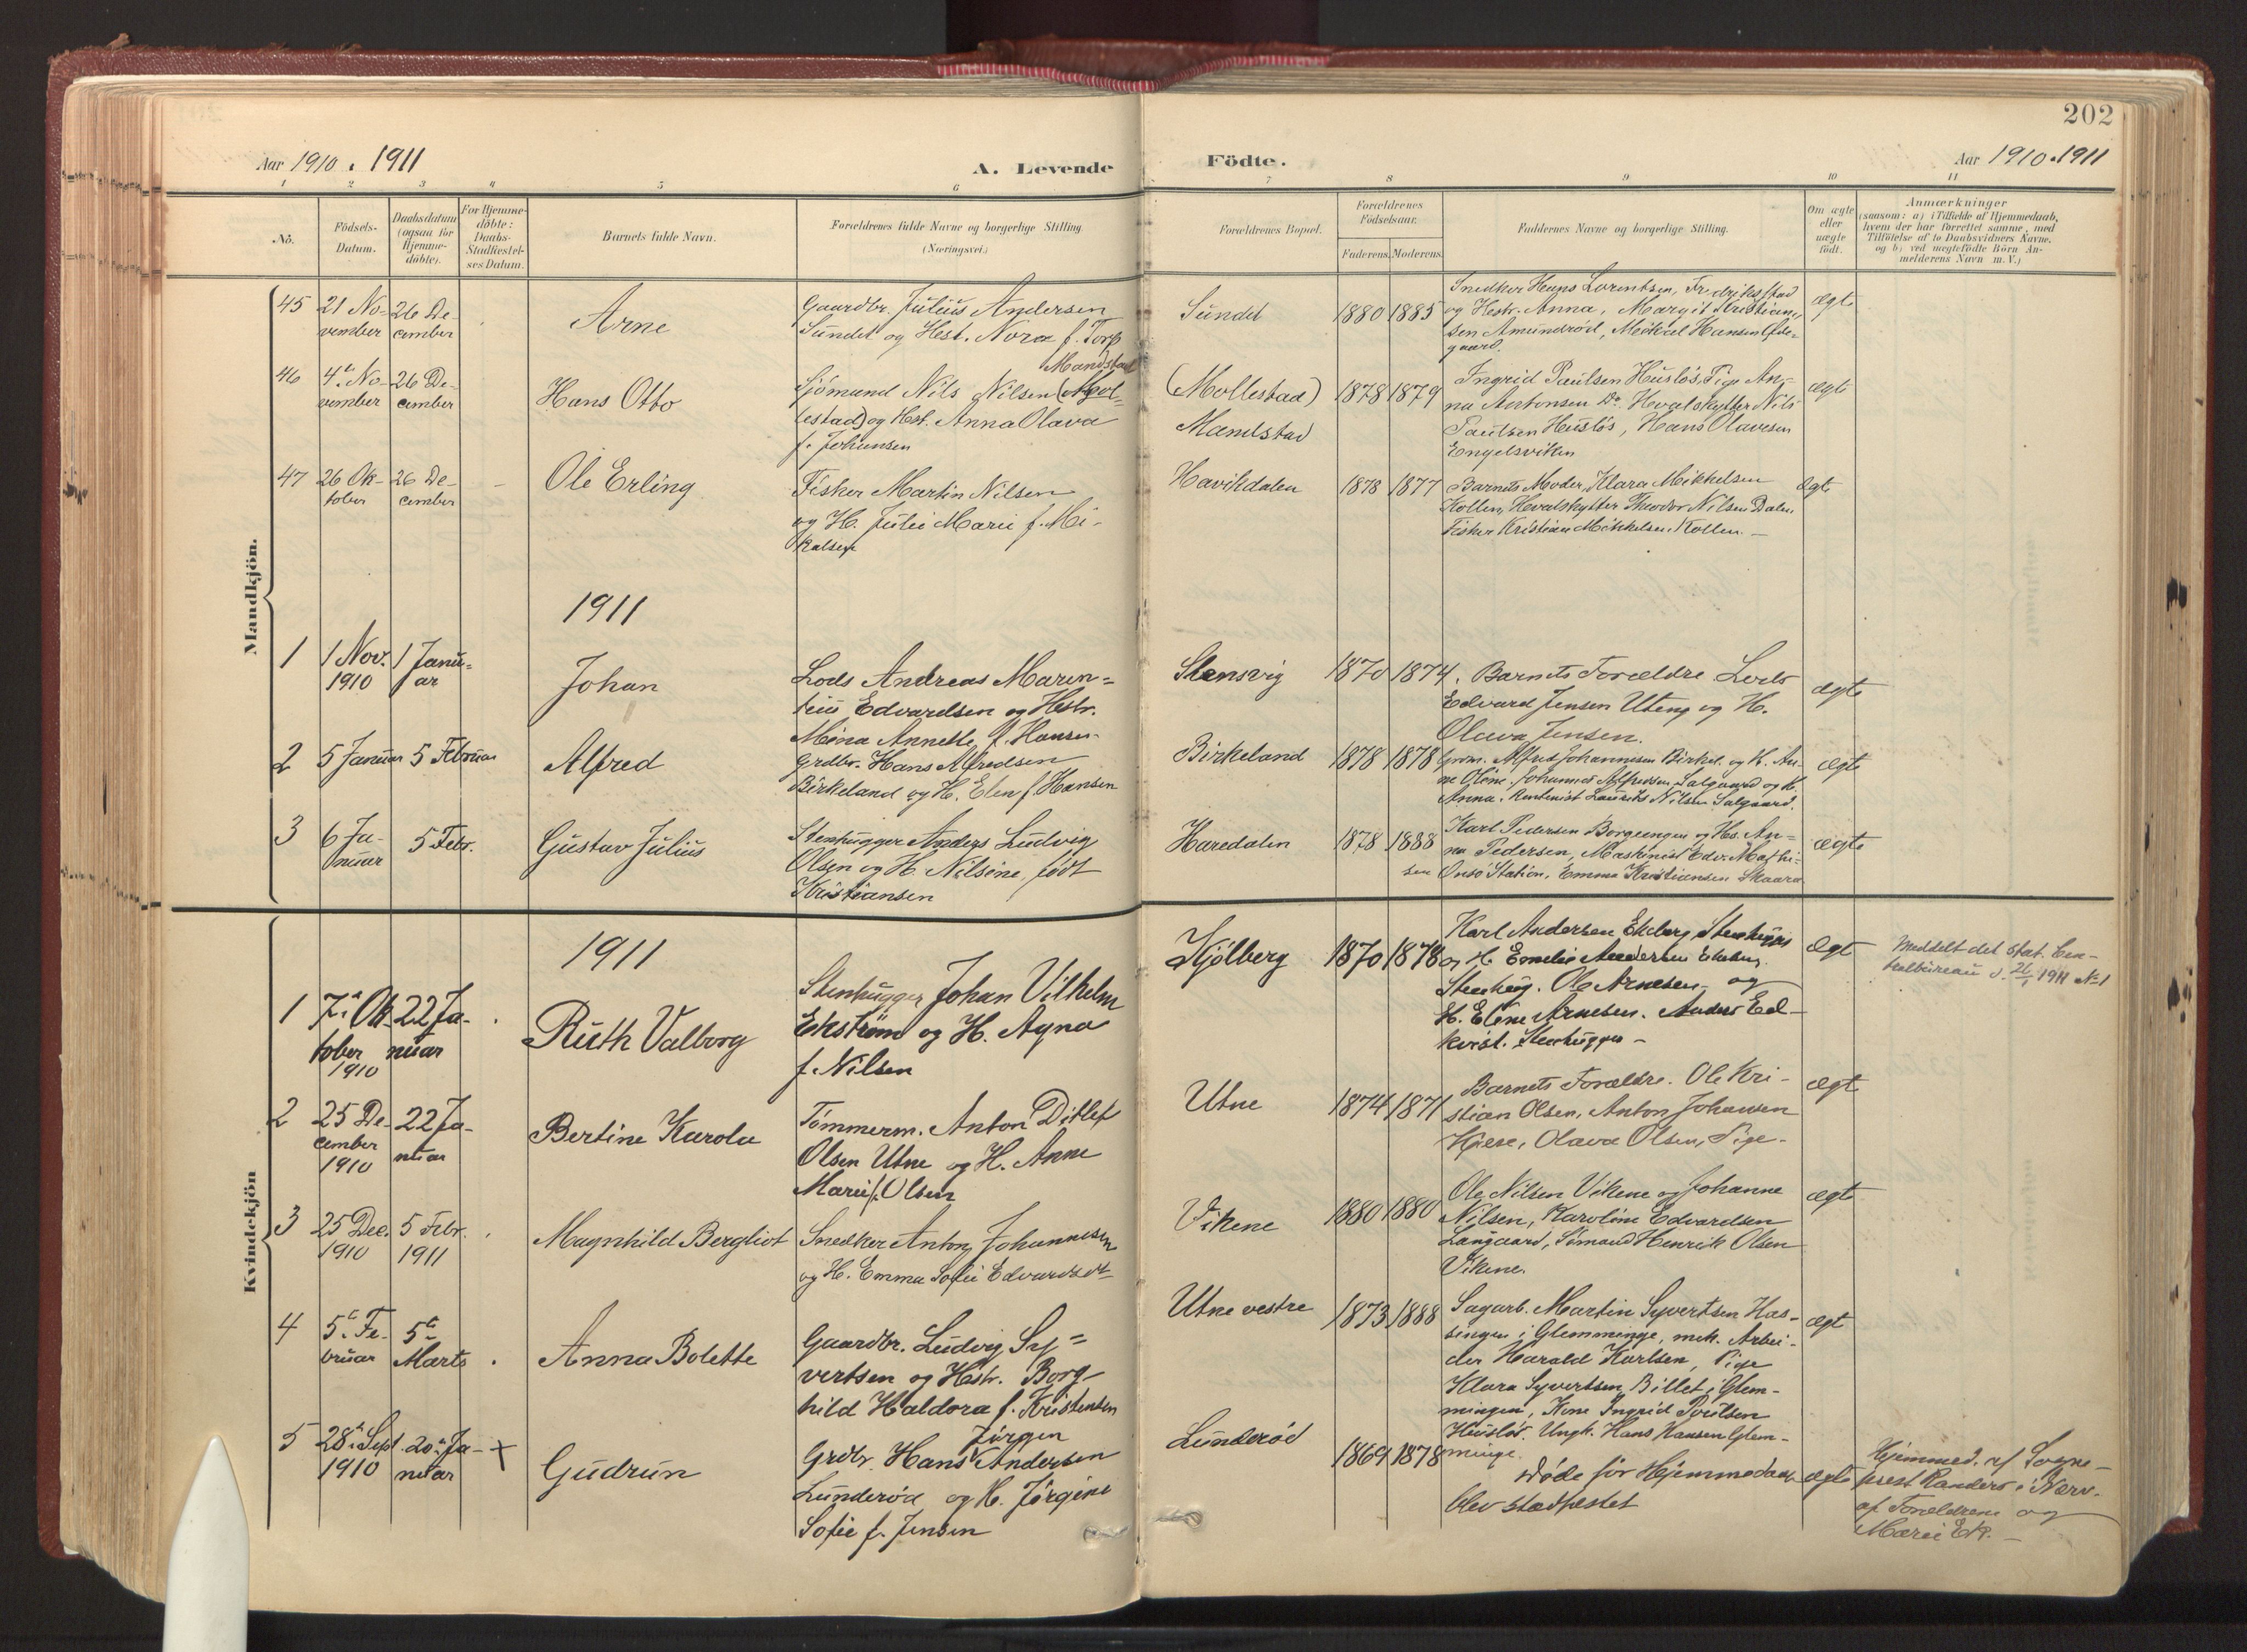 202
Aar 1910. 1911
A. Levende
Födte.
Aar 1910. 1911
1 2 3 4 5 6 7 8 9 10 11
No.
Födsels-
Datum.
Daabsdatum
(ogsaa for
Hjemme-
döbte).
For Hjemme-
döbte:
Daabs-
Stadfæstel-
ses Datum.
Barnets fulde Navn.
Forældrenes fulde Navne og borgerlige Stilling
(Næringsvei.)
Forældrenes Bopæl.
Forældrenes
Födselsaar.
Faderens. Moderens.
Faddernes Navne og borgerlige Stilling.
Om ægte
eller
uægte
födt.
Anmærkninger
(saasom: a) i Tilfælde af Hjemmedaab,
hvem der har forrettet samme, med
Tilföielse af to Daabsvidners Navne,
og b) ved uægtefödte Börn An-
melderens Navn m. V.)
Mandkjön.
45
21 No-
vember
26 De-
cember
Arne
Gaardbr. Julius Andersen
Sundet og Hust. Nora f. Torp
Sundet
1880 1885
Snedker Hans Lorentsen, Fredriksstad
og Hustr. Anna, Margit Kristian-
sen Amundröd, Mikal Hansen Öde-
gaard.
ægte
46
4de No-
vember
26 De-
cember
Hans Otto
Mandstad
Sjömand Nils Nilsen (Mol-
lestad) og Hst. Anna Olava
f. Johansen
(Mollestad)
Mandstad
1878 1879
Ingrid Paulsen Huslös, Pige An-
na Antonsen Do. Hvalskytter Nils
Paulsen Huslös, Hans Olavesen
Engelsviken
ægte
47
26 Ok-
tober
26 De-
cember
Ole Erling
Fisker Martin Nilsen
og H. Julie Marie f. Mi-
kalsen
Havikdalen
1878 1877
Barnets Moder, Klara Mikkelsen
Kollen, Hvalskytter Theodor Nilsen Dalen
Fisker Kristian Mikkelsen Kollen.
ægte
1911
1
1 Nov.
1910
1 Janu-
ar
Johan
Lods Andreas Maren-
tius Edvardsen og Hstr.
Mina Annette f. Hansen
Slensvig
1870 1874
Barnets Forældre Lods
Edvard Jensen Uteng og H.
Olava Jensen.
ægte
2
5 Januar
5 Februar
Alfred
Grdbr. Hans Alfredsen
Birkeland og H. Elen f. Hansen
Birkeland
1878 1878
Grdm. Alfred Johannesen Birkel. og H. An-
ne Oline, Johannes Alfredsen Salgaard og H.
Anna. Rentenist Laurits Nilsen Salgaard.
ægte
3
6 Ja-
nuar
5 Febr.
Gustav Julius
Stenhugger Anders Ludvig
Olsen og H. Nilsine, födt
Kristiansen
Haredalen
1878 1888
Karl Pedersen Borgeengen og Hs. An-
na Pedersen, Maskinist Edv. Mathi-
sen Onsö Station, Emma Kristiansen Skaara
ægte
Kvindekjön
1911
1
7de Ok-
tober
1910
22 Ja-
nuar
Ruth Valborg
Stenhugger Johan Vilhelm
Ekström og H. Agna
f. Nilsen
Kjölberg
1870 1878
Karl Andersen Ekeberg, Stenhugger
og H. Emelie Andersen Ekeberg
Stenhug. Ole Arnesen og
H. Eline Arnesen. Anders Ed-
kvist. Stenhugger
ægt
Meddelt det Stat. Cen-
tralbureau d. 26/1 1911 No 1
2
25 De-
cember
1910
22 Ja-
nuar
Bertine Karola
Tömmerm. Anton Ditlef
Olsen Utne og H. Anne
Marie f. Olsen
Utne
1874 1871
Barnets Forældre. Ole Kri-
stian Olsen, Anton Johansen
Kjære, Olava Olsen, Pige.
ægt
3
25 Dec.
1910
5 Febr.
1911
Magnhild Bergliot
Snedker Anton Johannesen
og H. Emma Sofie Edvardsdt
Vikene
1880 1880
Ole Nilsen Vikene og Johanne
Nilsen, Karoline Edvardsen
Langaard, Sömand Henrik Olsen
Vikene.
ægt
4
5te Fe-
bruar
5te
Marts
Anna Bolette
Gaardbr. Ludvig Sy-
vertsen og Hstr. Borg-
hild Haldora f. Kristensen
Utne vestre
1873 1888
Sagarb. Martin Syvertsen Has-
singen i Glemminge, mek. Arbei-
der Harald Karlsen, Pige
Klara Syvertsen Billet i Glem-
mingen, Kone Ingrid Poulsen
Huslös. Ungk. Hans Hansen Glem-
minge.
ægt
5
28de Sept.
1910
20de Ja-
nuar
+
Gudrun
Jörgen
Grdbr. Hans Andersen
Lunderöd og H. Jörgine
Sofie f. Jensen
Lunderöd
1869 1878
Döde för Hjemmedaab
blev stadfæstet
ægte
Hjemmed. af Sogne-
prest Randers i Nærv.
af Forældrene og
Marie Ek.